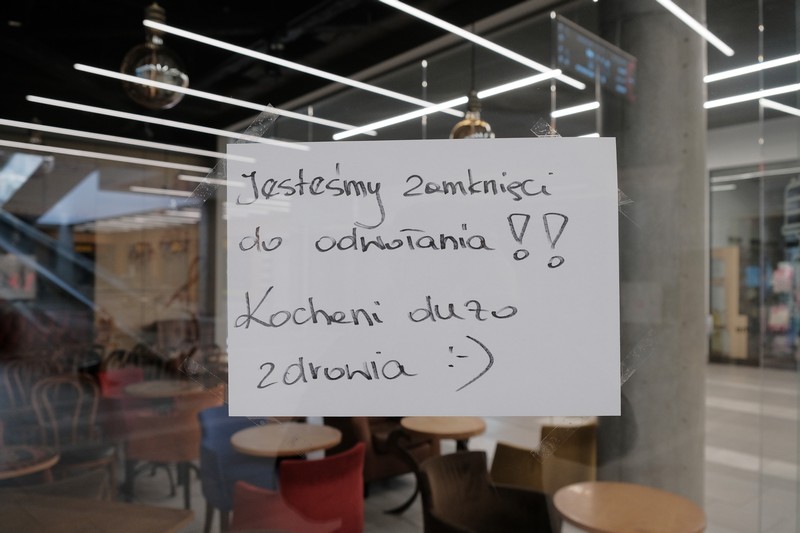 Jesteśmy zamknięci
do odwołania !!
Kocheni dużo
zdrowia :-)